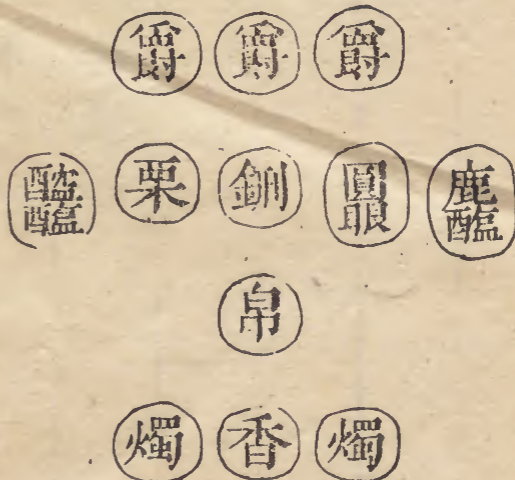 爵 爵 爵
鹿醢 圓眼 鉶 栗 醓醢
帛
燭 香 燭